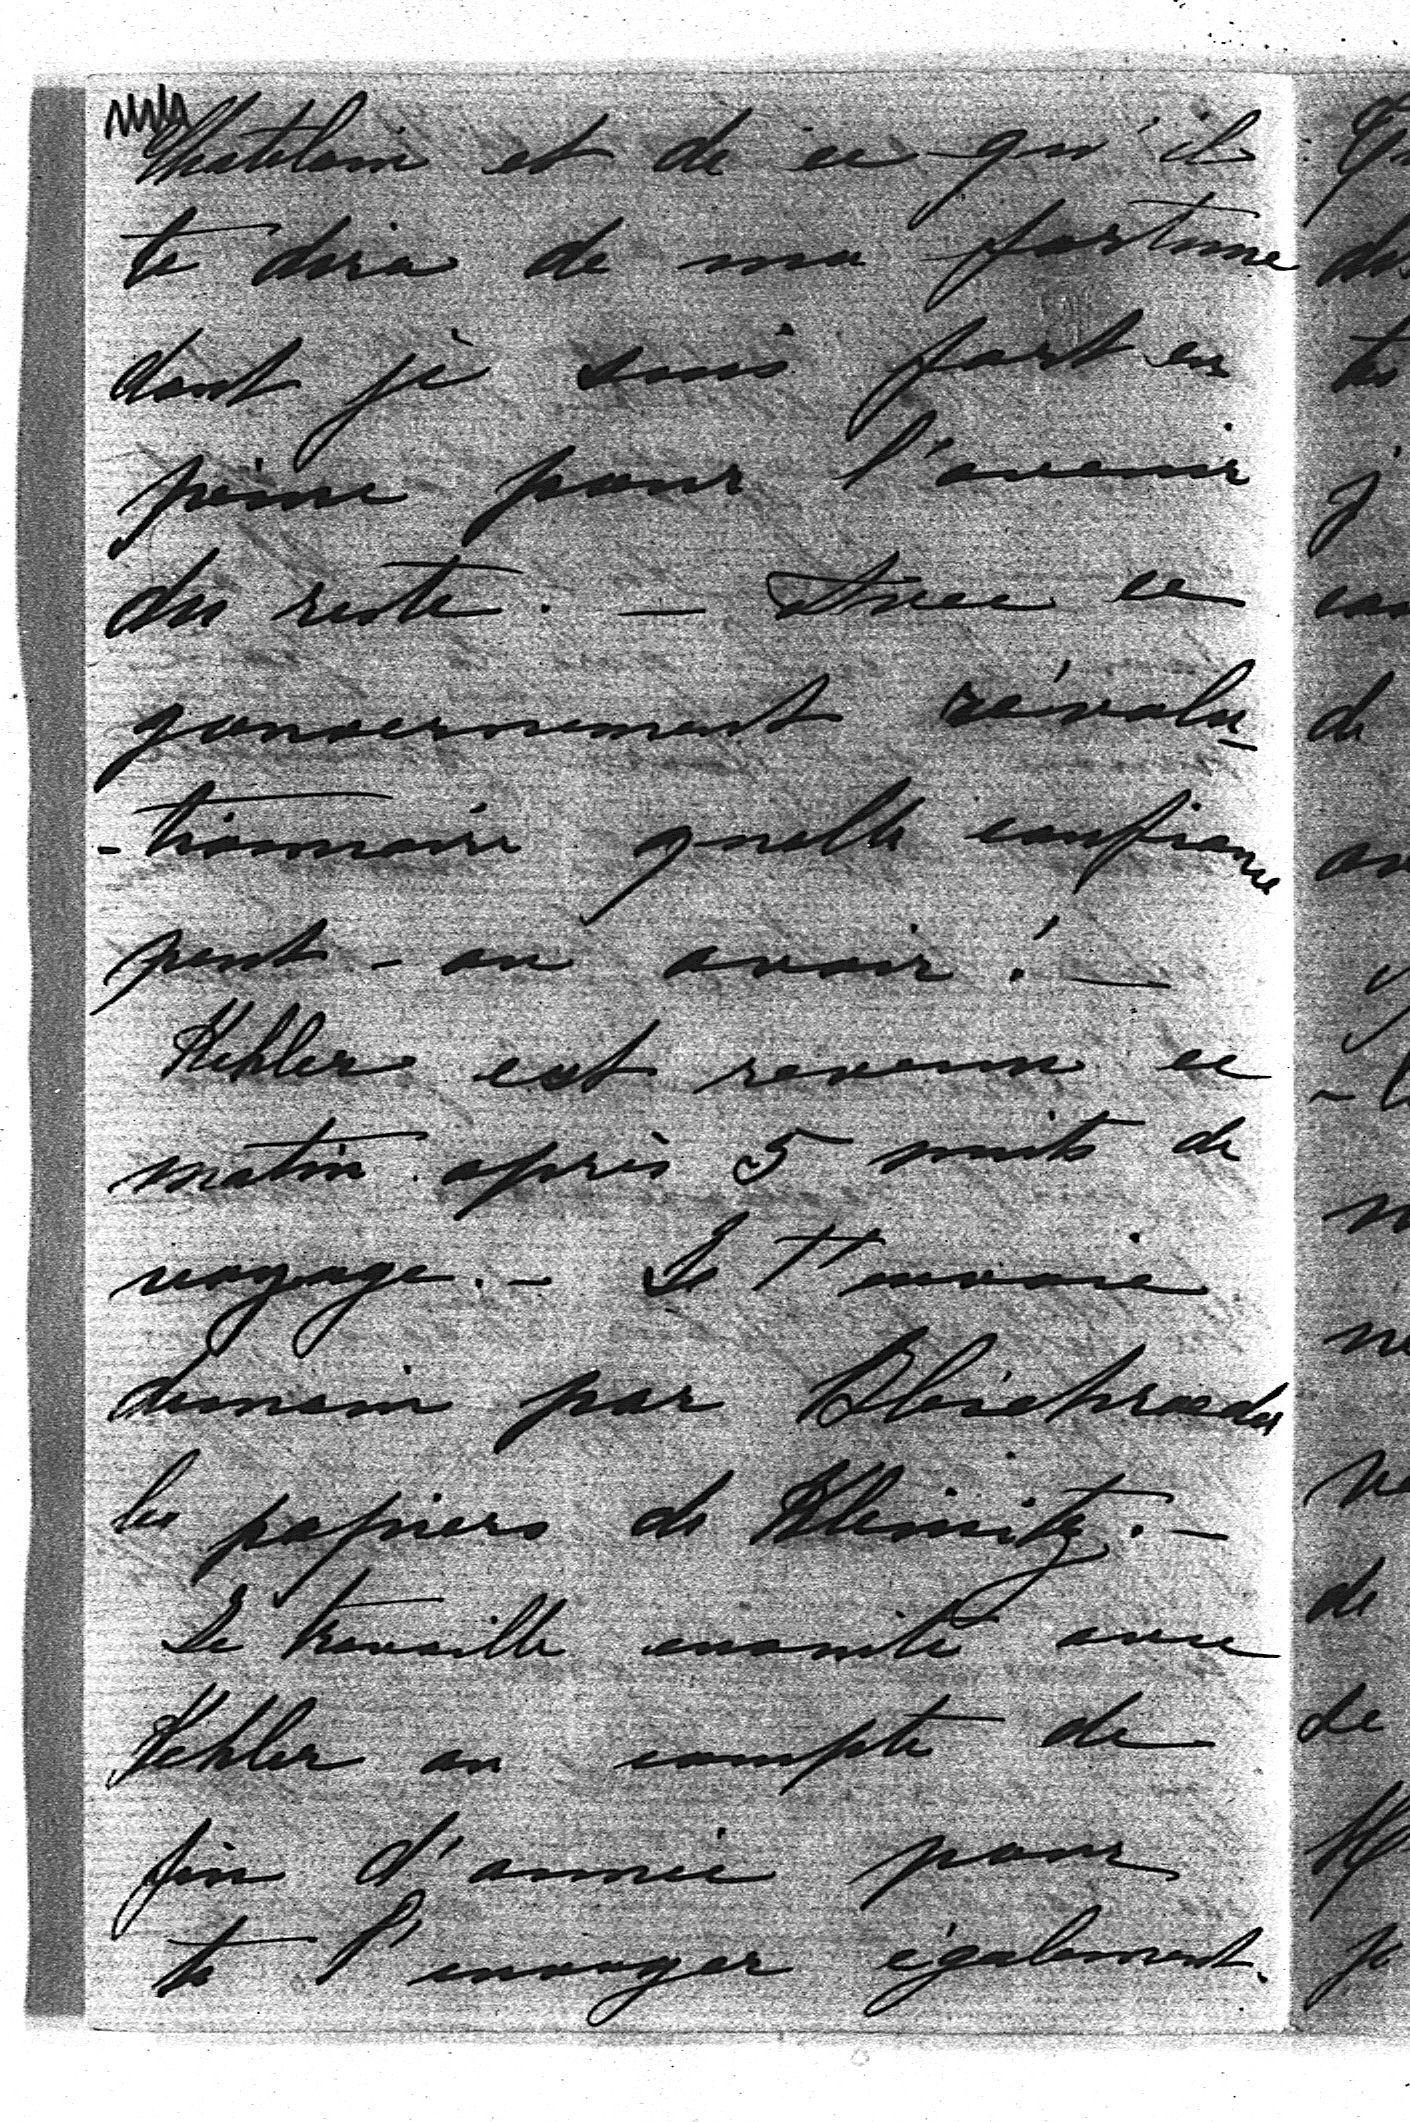 Chatelain et de ce qu'ils
te dira de ma fortune
dont je suis fort en
peine pour l'avenir
du reste. — Avec ce
gouvernement révolu-
-tionnaire quelle confiance
peut-on avoir! —
Kehler est revenu ce
matin après 5 nuits de
voyage. — Je t'envoie
demain par Bleichroeder
les papiers de Kleinitz. —
Je travaille ensuite avec
Kehler au compte de
fin d'année pour
te l'envoyer également.